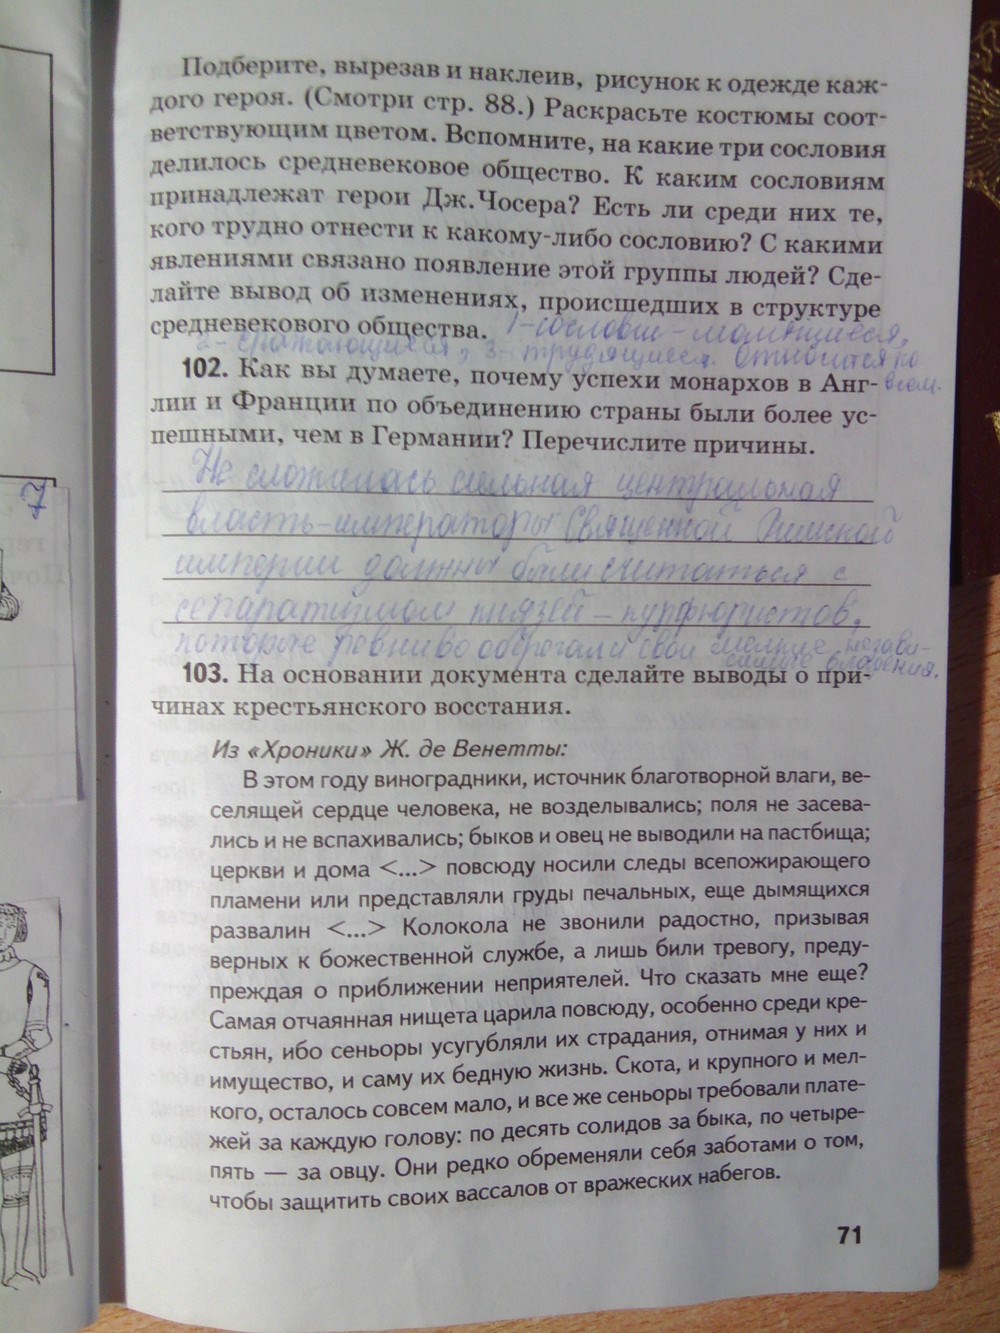 Подберите, вырезав и наклеив, рисунок к одежде каж-
дого героя. (Смотри стр. 88.) Раскрасьте костюмы соот-
ветствующим цветом. Вспомните, на какие три сословия
делилось средневековое общество. К каким сословиям
принадлежат герои Дж.Чосера? Есть ли среди них те,
кого трудно отнести к какому-либо сословию? С какими
явлениями связано появление этой группы людей? Сде-
лайте вывод об изменениях, происшедших в структуре
средневекового общества. 1-сословие-молящиеся,
2-сражающиеся, 3-трудящиеся. Относится ко
всем.
102. Как вы думаете, почему успехи монархов в Анг-
лии и Франции по объединению страны были более ус-
пешными, чем в Германии? Перечислите причины.
Не сложилась сильная центральная
власть-императоры Священной Римской
империи должны были считаться с
сепаратизмом князей-курфюристов,
которые ревниво оберегали свои мелкие незави-
симые владения.
103. На основании документа сделайте выводы о при-
чинах крестьянского восстания.
Из «Хроники» Ж. де Венетты:
В этом году виноградники, источник благотворной влаги, ве-
селящей сердце человека, не возделывались; поля не засева-
лись и не вспахивались; быков и овец не выводили на пастбища;
церкви и дома <...> повсюду носили следы всепожирающего
пламени или представляли груды печальных, еще дымящихся
развалин <...> Колокола не звонили радостно, призывая
верных к божественной службе, а лишь били тревогу, преду-
преждая о приближении неприятелей. Что сказать мне еще?
Самая отчаянная нищета царила повсюду, особенно среди кре-
стьян, ибо сеньоры усугубляли их страдания, отнимая у них и
имущество, и саму их бедную жизнь. Скота, и крупного и мел-
кого, осталось совсем мало, и все же сеньоры требовали плате-
жей за каждую голову: по десять солидов за быка, по четыре-
пять — за овцу. Они редко обременяли себя заботами о том,
чтобы защитить своих вассалов от вражеских набегов.
71
7